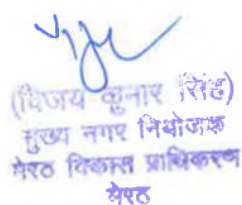 (विजय कुमार सिंह)
मुख्य नगर नियोजक
मेरठ विकास प्राधिकरण
मेरठ